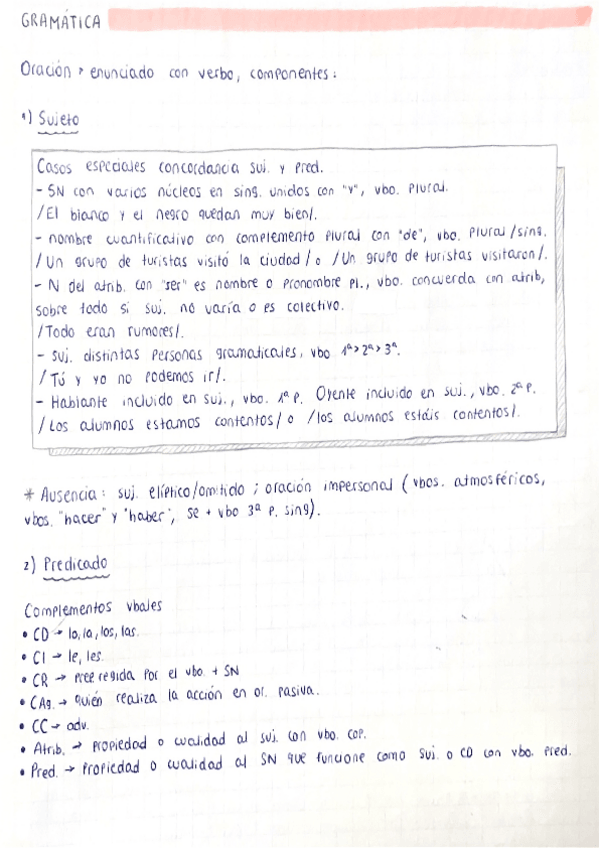 GRAMÁTICA
Oración → enunciado con verbo, componentes:
1) Sujeto
Casos especiales concordancia suj. y pred.
- SN con varios núcleos en sing. unidos con "y", vbo. plural.
/El blanco y el negro quedan muy bien/.
- nombre cuantificativo con complemento plural con "de", vbo. plural/sing.
/Un grupo de turistas visitó la ciudad/ o /Un grupo de turistas visitaron/.
- N del atrib. con "ser" es nombre o pronombre pl., vbo. concuerda con atrib,
sobre todo si suj. no varía o es colectivo.
/Todo eran rumores/.
- Suj. distintas personas gramaticales, vbo 1ª>2ª>3ª.
/Tú y yo no podemos ir/.
- Hablante incluido en suj., vbo. 1ª p. Oyente incluido en suj., vbo. 2ª p.
/Los alumnos estamos contentos/ o /los alumnos estáis contentos/.
* Ausencia: suj. elíptico/omitido; oración impersonal (vbos. atmosféricos,
vbos. "hacer" y "haber", se + vbo 3ª p. sing).
2) Predicado
Complementos vbales
• CD → lo, la, los, las.
• CI → le, les.
• CR → prep regida por el vbo. + SN
• CAg. → quién realiza la acción en or. pasiva.
• CC → adv.
• Atrib. → propiedad o cualidad al suj. con vbo. cop.
• Pred. → propiedad o cualidad al SN que funcione como suj. o CD con vbo. pred.